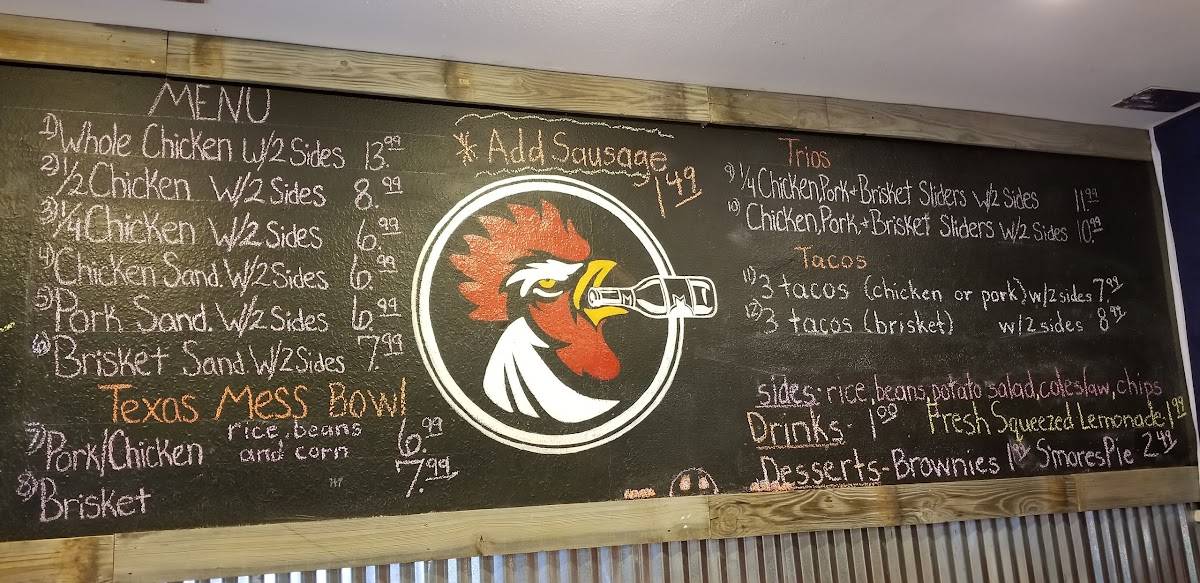 MENU
1) Whole Chicken W/2 Sides 13.99
2) 1/2 Chicken W/2 Sides 8.99
3) 1/4 Chicken W/2 Sides 6.99
4) Chicken Sand. W/2 Sides 6.99
5) Pork Sand. W/2 Sides 6.99
6) Brisket Sand W/2 Sides 7.99
Texas Mess Bowl
7) Pork/Chicken rice, beans and corn 6.99
8) Brisket 7.99
* Add Sausage 1.49
M
Trios
9) 1/4 Chicken, Pork + Brisket Sliders w/2 Sides 11.99
10) Chicken, Pork, + Brisket Sliders w/2 Sides 10.99
Tacos
11) 3 tacos (chicken or pork) w/2 sides 7.99
12) 3 tacos (brisket) w/2 sides 8.99
sides: rice, beans, potato salad, coleslaw, chips
Drinks- 1.00 Fresh Squeezed Lemonade- 1.99
Desserts- Brownies Smores Pie 2.49